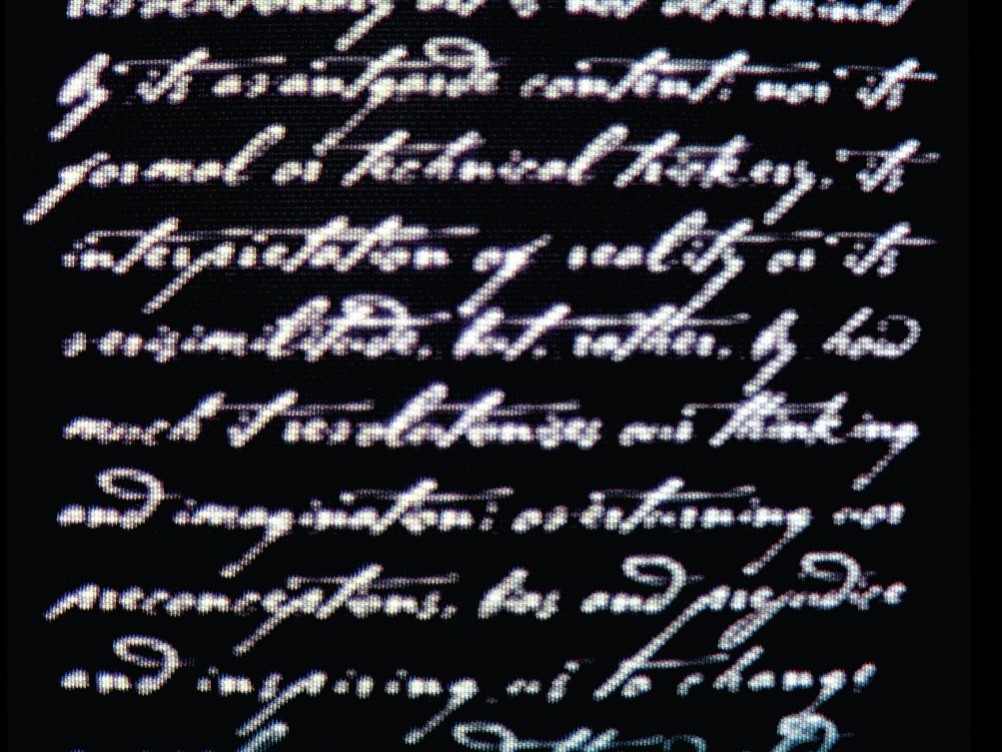 is not determined
by its avantgarde content; nor its
formal or technical trickery, its
interpretation of reality or its
verisimilitude, but, rather, by how
much it revolutionises our thinking
and imagination; overturning our
preconceptions, bias and prejudice
and inspiring us to change